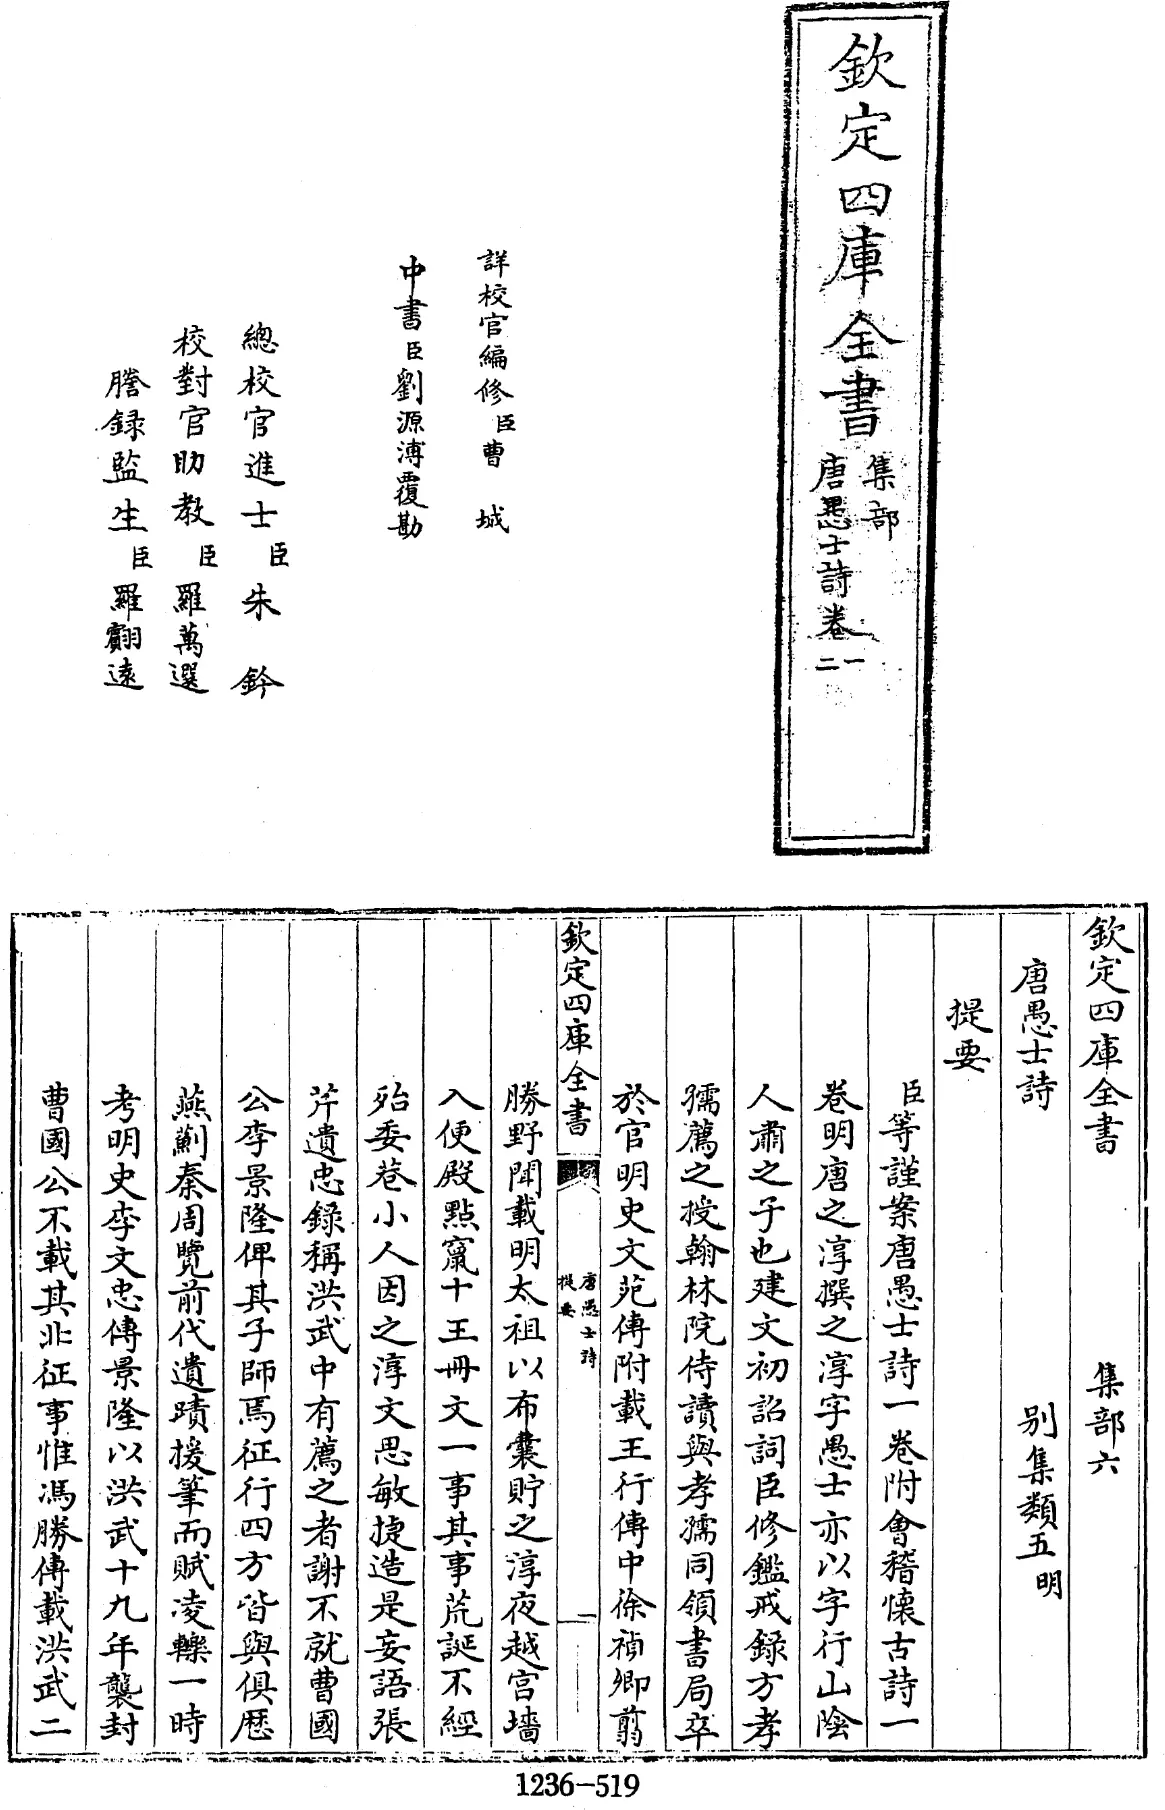 欽定四庫全書
集部
唐愚士詩卷一
二
詳校官編修臣曹城
中書臣劉源溥覆勘
總校官進士臣朱鈐
校對官助教臣羅萬選
謄錄監生臣羅翽遠
欽定四庫全書 集部六
唐愚士詩 別集類五明
提要
臣等謹案唐愚士詩一卷附會稽懷古詩一
卷明唐之淳撰之淳字愚士亦以字行山陰
人肅之子也建文初詔詞臣修鑑戒錄方孝
孺薦之授翰林院侍讀與孝孺同領書局卒
於官明史文苑傳附載王行傳中徐禎卿翦
欽定四庫全書 唐愚士詩 提要 一
勝野聞載明太祖以布囊貯之淳夜越宮墻
入便殿點竄十王冊文一事其事荒誕不經
殆委巷小人因之淳文思敏捷造是妄語張
芹遺忠錄稱洪武中有薦之者謝不就曹國
公李景隆俾其子師焉征行四方皆與俱歷
燕薊秦周覽前代遺蹟援筆而賦凌轢一時
考明史李文忠傳景隆以洪武十九年襲封
曹國公不載其北征事惟馮勝傳載洪武二
1236-519